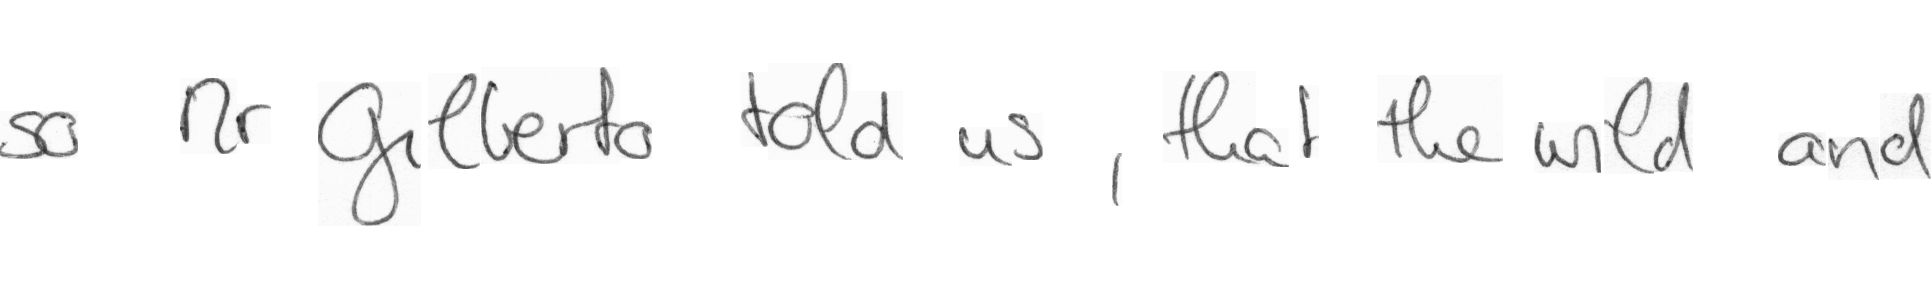 so Mr Gilberto told us, that the wild and